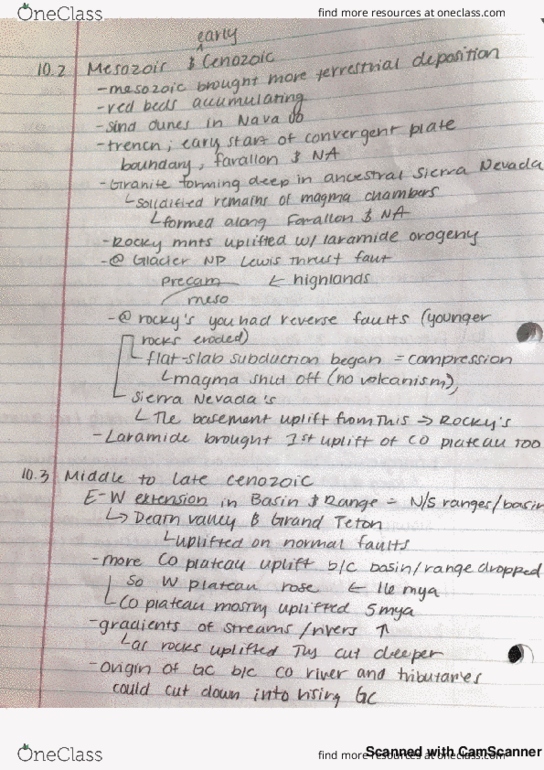 OneClass
find more resources at oneclass.com
early
10.2 Mesozoic & Cenozoic
- mesozoic brought more terrestrial deposition
- red beds accumulating
- sind dunes in Nava
- trench; early start of convergent plate
boundary, farallon & NA
- Granite forming deep in ancestral Sierra Nevada
└ solidified remains of magma chambers
└ formed along Farallon & NA
- Rocky mnts uplifted w/ laramide orogeny
- @ Glacier NP Lewis Thrust faut
precam ← highlands
meso
- @ rocky's you had reverse faults (younger
rocks eroded)
└ flat-slab subduction began = compression
└ magma shut off (no volcanism),
└ Sierra Nevada's
└ The basement uplift from This → Rocky's
- Laramide brought 1st uplift of CO plateau too
10.3 Middle to late cenozoic
E-W extension in Basin & Range = N/S ranges/basin
↳ Death valley & Grand Teton
└ uplifted on normal faults
- more CO plateau uplift b/c basin/range dropped
so W plateau rose ← 16 mya
└ CO plateau mostly uplifted 5mya
- gradients of streams/rivers ↑
└ as rocks uplifted They cut deeper
- origin of GC b/c CO river and tributaries
could cut down into rising GC
OneClass
find more resources at oneclass.com
Scanned with CamScanner